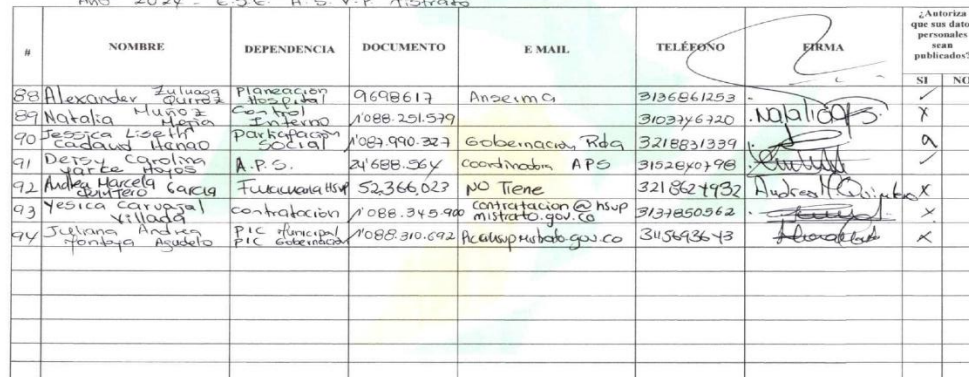 Año 2024 - E.S.E. H.S.V.P. Mistrato
# NOMBRE DEPENDENCIA DOCUMENTO E MAIL TELÉFONO FIRMA ¿Autoriza que sus datos personales sean publicados? SI NO
88 Alexander Zuluaga Quiroz Planeación Hospital 9698617 Anserma 3136861253
89 Natalia Muñoz Mejia Control Interno 1'088.251.579 3103746720 Natalia
90 Jessica Liseth Cadavid Henao participación social 1'087.990.327 Gobernación Rda 3218831339
91 Deisy Carolina Yarce Hoyos A.P.S. 24'688.564 Coordinadora APS 3152840798
92 Andrea Marcela Garcia Quintero HSVP 52,366,023 NO Tiene 3218627932 Andrea M Quintero X
93 Yesica Carvajal Villada contratación 1'088.345.900 contratacion@hsvp mistrato.gov.co 3137850562 X
94 Juliana Andrea Montoya Agudelo PIC Municipal PIC Gobernación 1'088.310.692 3115693643 X